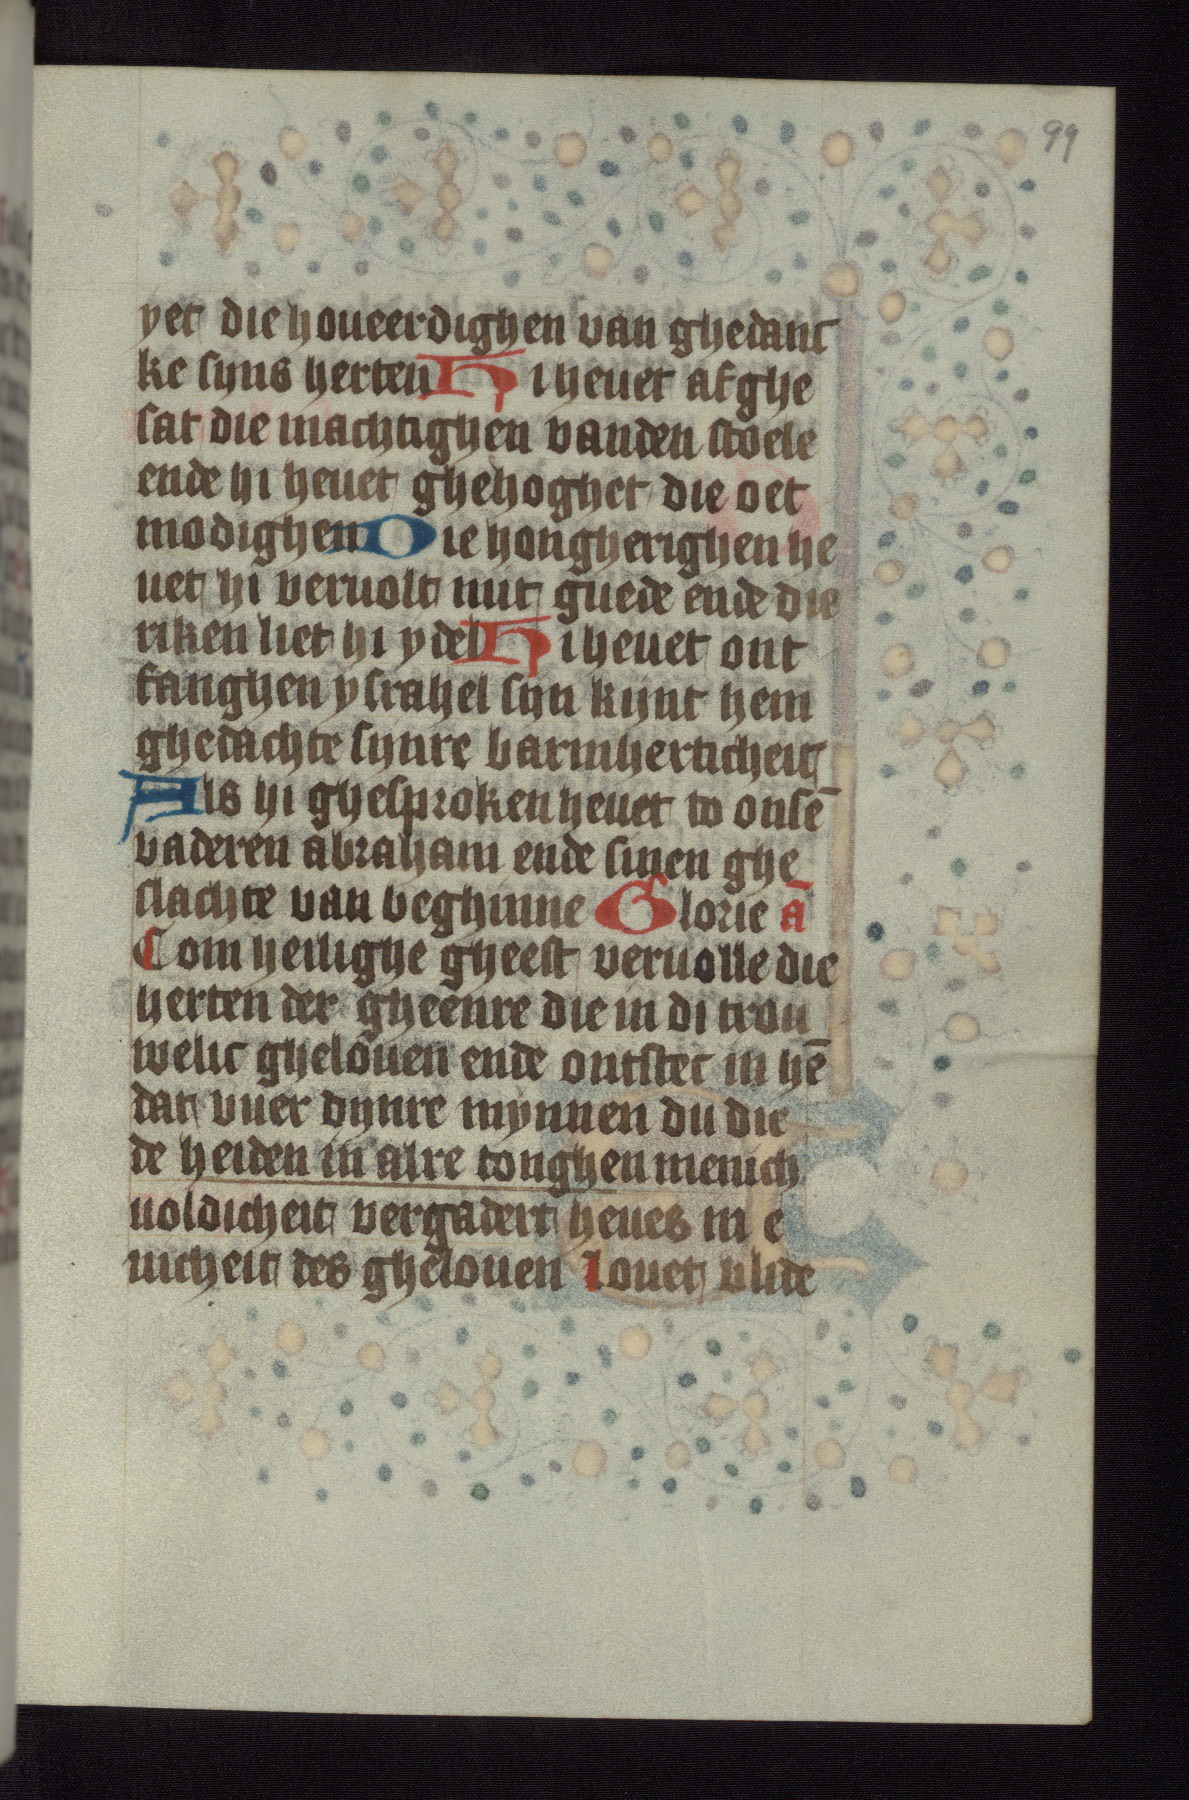 99
yet die houeerdighen van ghedanc
ke sijns herten Hi heuet afghe
sat die machtighen vanden stoele
ende hi heuet ghehoghet die oet
modighen Die hongherighen he
uet hi veruolt mit guede ende die
riken liet hi ydel Hi heuet ont
fanghen ysrahel sijn kijnt hem
ghedachte sijnre barmherticheit
Als hi ghesproken heuet to onsē
vaderen abraham ende sinen ghe
slachte van beghinne Glorie ā
Com heilighe gheest veruolle die
herten der gheenre die in di trou
welic ghelouen ende ontstec in hē
dat vuer dijnre mynnen du die
de heiden in alre tonghen menich
uoldicheit vergadert heues in e
nicheit des ghelouen louet v lude